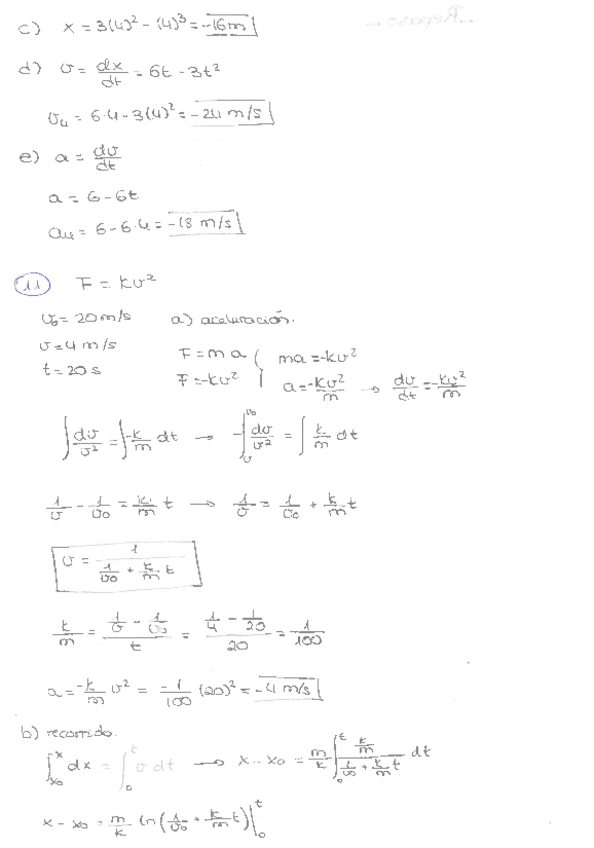 c) x = 3(4)² - (4)³ = -16m
d) v = dx/dt = 6t - 3t²
v₄ = 6·4 - 3(4)² = -24 m/s
e) a = dv/dt
a = 6 - 6t
a₄ = 6 - 6·4 = -18 m/s
11 F = kv²
v₀ = 20 m/s a) aceleración.
v = 4 m/s
t = 20 s
F = m a
F = -kv²
ma = -kv²
a = -kv²/m → dv/dt = -kv²/m
∫ dv/v² = ∫ -k/m dt → -∫ᵥᵛ⁰ dv/v² = ∫ k/m dt
1/v - 1/v₀ = k/m t → 1/v = 1/v₀ + k/m t
v = 1/(1/v₀ + k/m t)
k/m = (1/v - 1/v₀)/t = (1/4 - 1/20)/20 = 1/100
a = -k/m v² = -1/100 (20)² = -4 m/s
b) recorrido.
∫ₓ₀ˣ dx = ∫₀ᵗ v dt → x - x₀ = m/k ∫₀ᵗ (k/m)/(1/v₀ + k/m t) dt
x - x₀ = m/k ln(1/v₀ + k/m t)|₀ᵗ